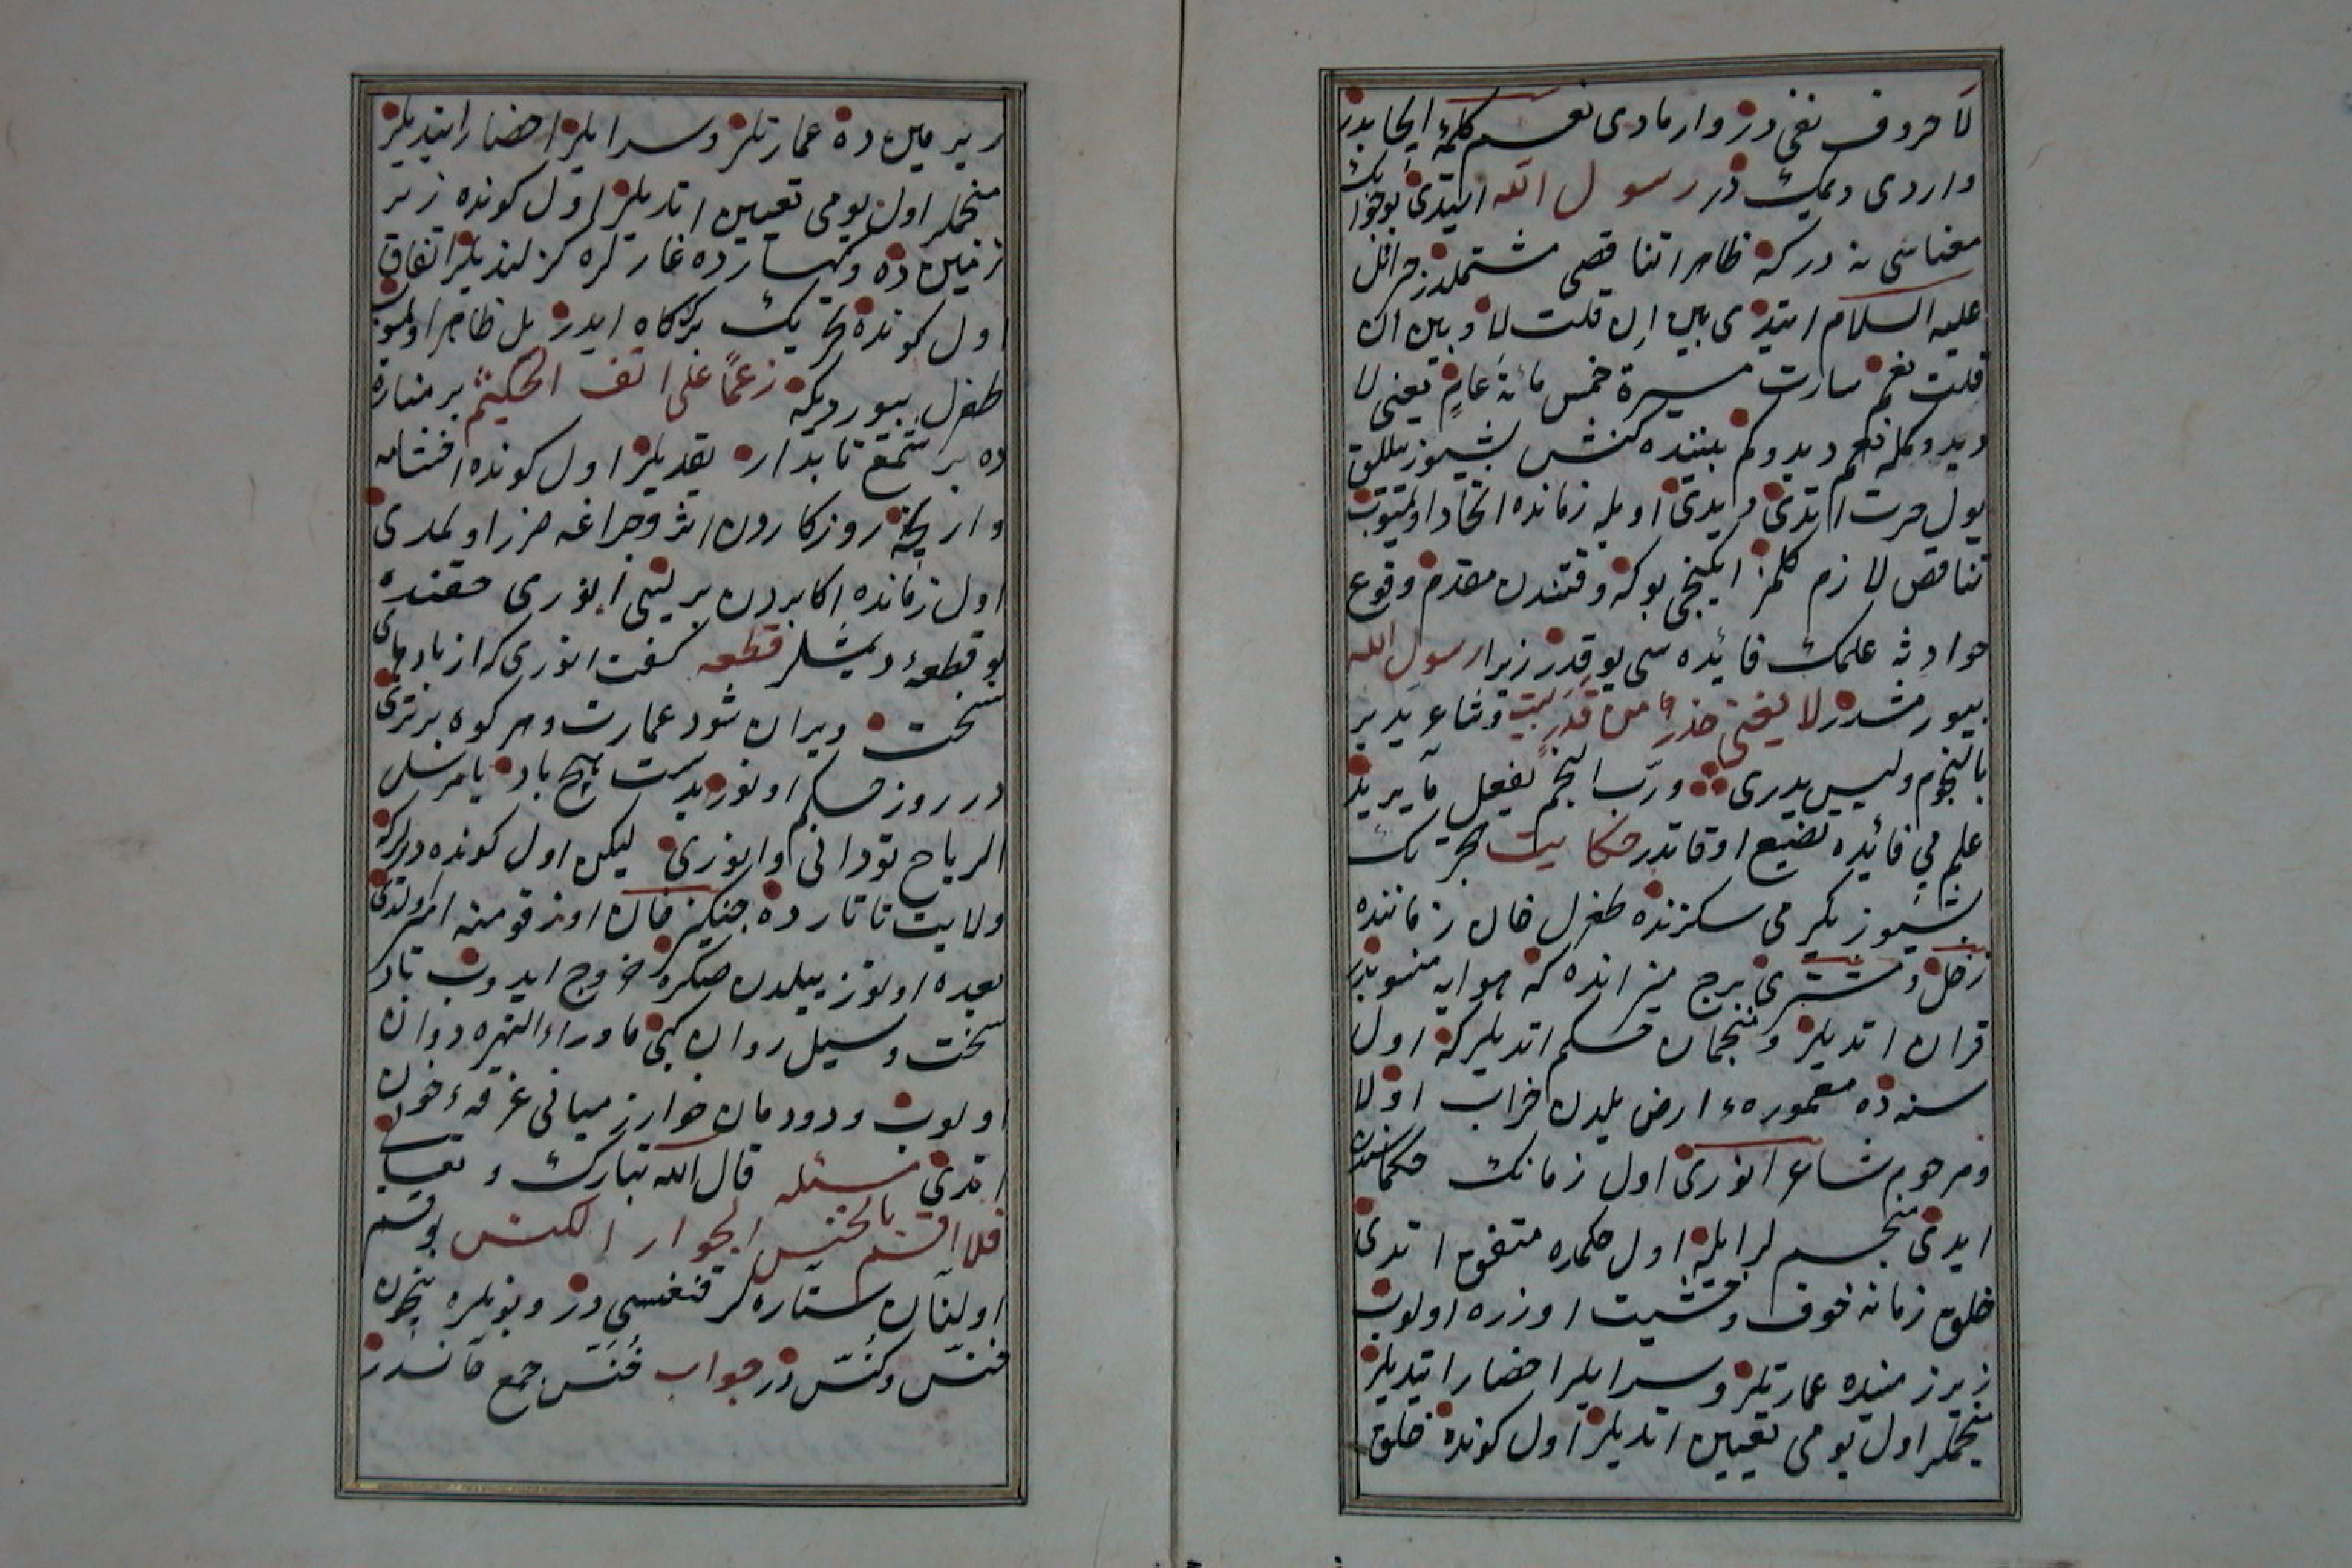 لا حروف نفى در وار مادى نعم كلمهٔ ايجابدر
واردى ديمك در رسول الله ايتدى بو جوابك
معناسى نه دركه ظاهرا تناقضى مشتملدر جبرائل
عليه السلام ايتدى بين ان قلت لا و بين ان
قلت نعم سارت مسيرة خمس مائة عام يعنى لا
ديدوكمله نعم ديدوكم بيننده كنش بشيوز ييللق
يول حركت اتدى ديدى اويله زمانده اتحاد اولميوب
تناقض لازم كلمز ايكنجى بوكه وقتندن مقدم وقوع
حوادثه علمك فائده سى يوقدر زيرا رسول الله
بيورمشدر لا يغنى حذر من قدر بيت و شاعر يدبر
بالنجوم وليس يدرى ورب النجم يفعل ما يريد
علم بي فائده تضييع اوقاتدر حكايت هجرتك
بشيوز يكرمى سكزنده طغرل خان زماننده
زحل و مشترى برج ميزانده كه هوايه منسوبدر
قران اتديلر و منجمان حكم اتديلر كه اول
سنه ده معموره ء ارض يلدن خراب اولا
و مرحوم شاعر انورى اول زمانك حكماسندن
ايدى منجم لر ايله اول حكمده متفق اتدى
خلق زمانه خوف و خشيت اوزره اولوب
زير زمينده عمارتلر و سرايلر احضار ايتديلر
منجملر اول يومى تعيين اتديلر اول كونده خلق
زير مين ده عمارتلر و سرايلر احضار ايتديلر
منجملر اول يومى تعيين اتديلر اول كونده زير
زمين ده و كهسارده غارلره كزلنديلر اتفاق
اول كونده تحريك بركاه ايدر يل ظاهر اولميوب
طغرل بيورديكه زعما على انف الحكيم بر مناره
ده بر شمع تابدار يقديلر اول كونده اخشامه
وار نجه روزكاردن اثر و چراغه ضرر اولمدى
اول زمانده اكابردن بريسى انورى حقنده
بو قطعهٔ ديمشلر قطعه كفت انورى كه از بادهاى
سخت ويران شود عمارت و هر كوه برترى
در روز حكم او نوزيدست هيچ باد يا مرسل
الرياح تودانى و انورى ليكن اول كونده ديرلركه
ولايت تاتارده جنكيز خان اوز قومنه امير اولدى
بعده اوتوز ييلدن صكره خروج ايدوب باد
سخت و سيل روان كبى ماوراء النهره دوان
اولوب و دودمان خوارزميانى غرقهٔ خون
اتدى مسئله قال الله تبارك و تعالى
فلا اقسم بالخنس الجوار الكنس بو قسم
اولنان ستاره لر قنغسى در و بونلره نيچون
خنس و كنس در جواب خنس جمع خانسدر